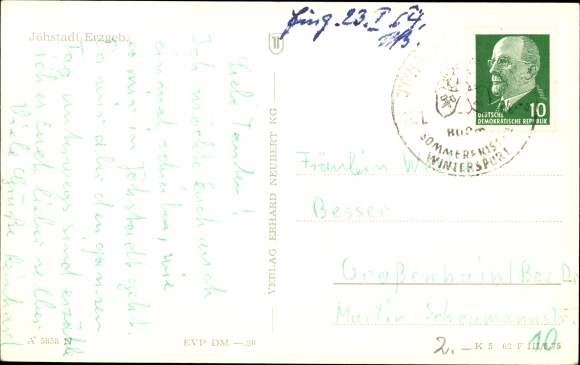 Jöhstadt Erzgeb.
Eing. 23. I 64.
Liebe Tanten!
Ich möchte Euch auch
einmal schreiben, wie
es mir in Jöhstadt geht.
Da wir aber den ganzen
Tag unterwegs sind erzähle
ich es euch lieber selber
Viele Grüße Reinhard
A 5858
EVP DM —.20
VERLAG ERHARD NEUBERT KG
DEUTSCHE
DEMOKRATISCHE REPUBLIK
10
SOMMERFRISCHE
WINTERSPORT
Fräulein
Besser
Großenhain/Bez. D.
Martin-Scheumannstr.
2.-
K 5 62 F III/6/75
10